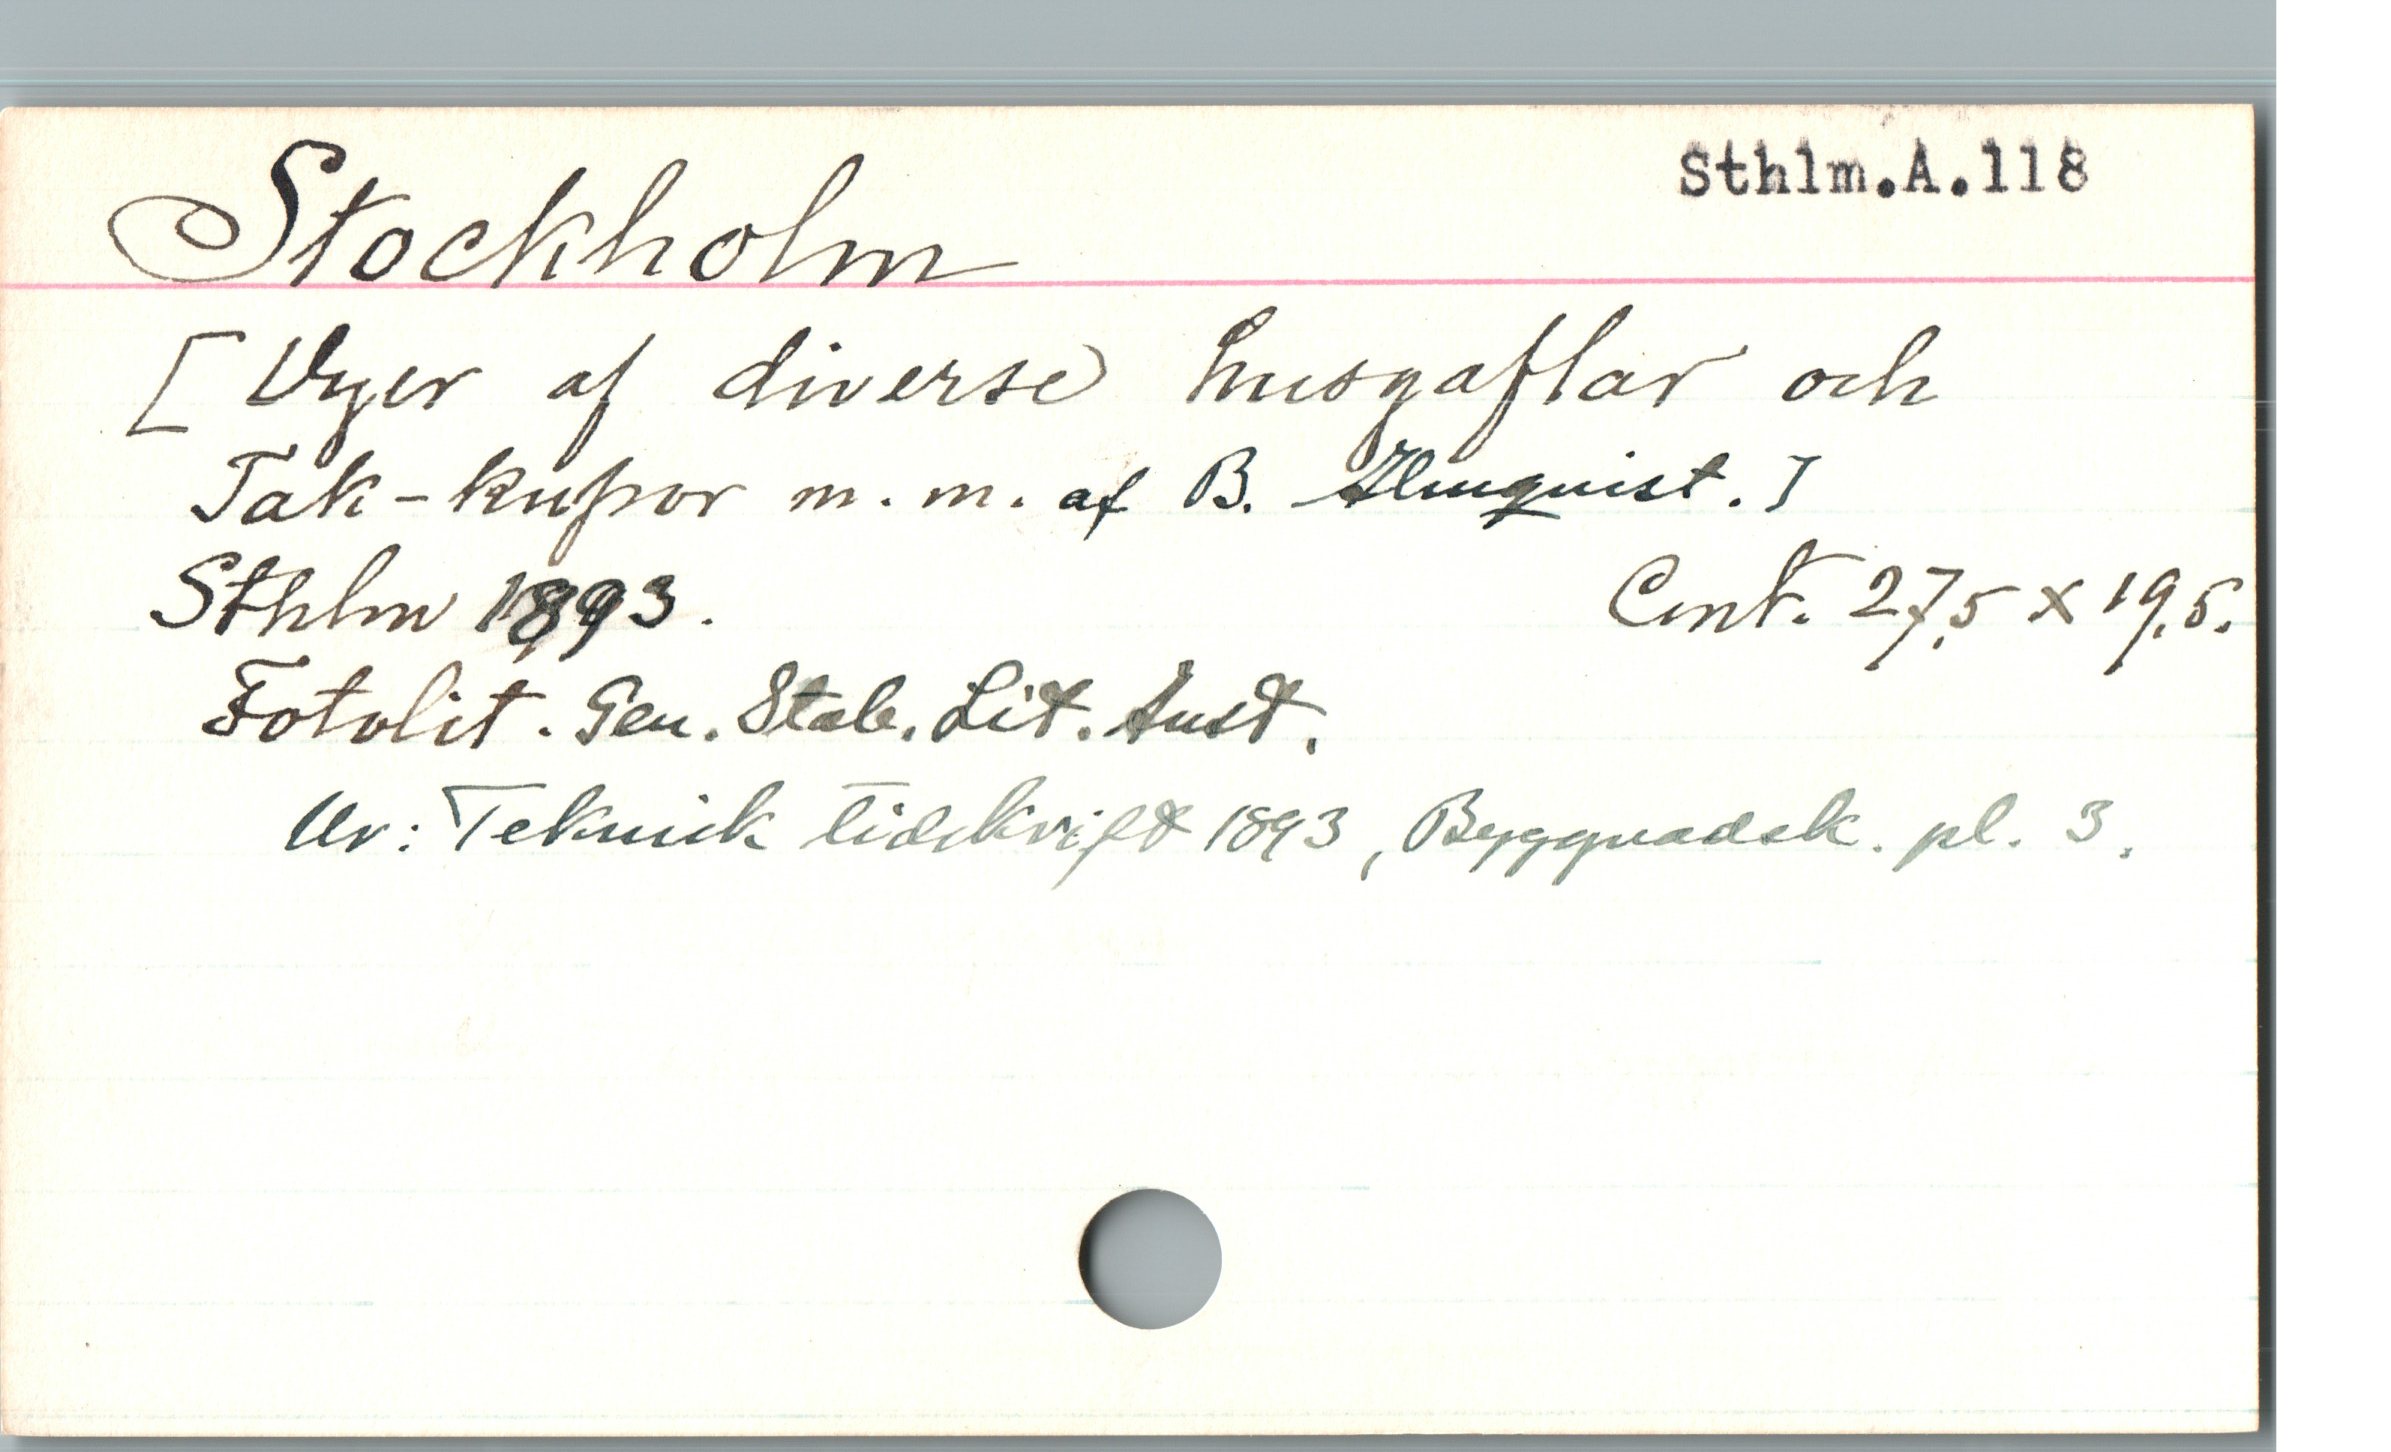 Sthlm.A.118
Stockholm
[Vyer af diverse husgaflar och
Tak-kupor m. m. af B. Almquist.]
Sthlm 1893. Cent. 27,5 x 19,5.
Fotolit. Gen. Stab. Lit. Anst.
Ur: Teknisk tidskrift 1893, Byggnadsk. pl. 3.